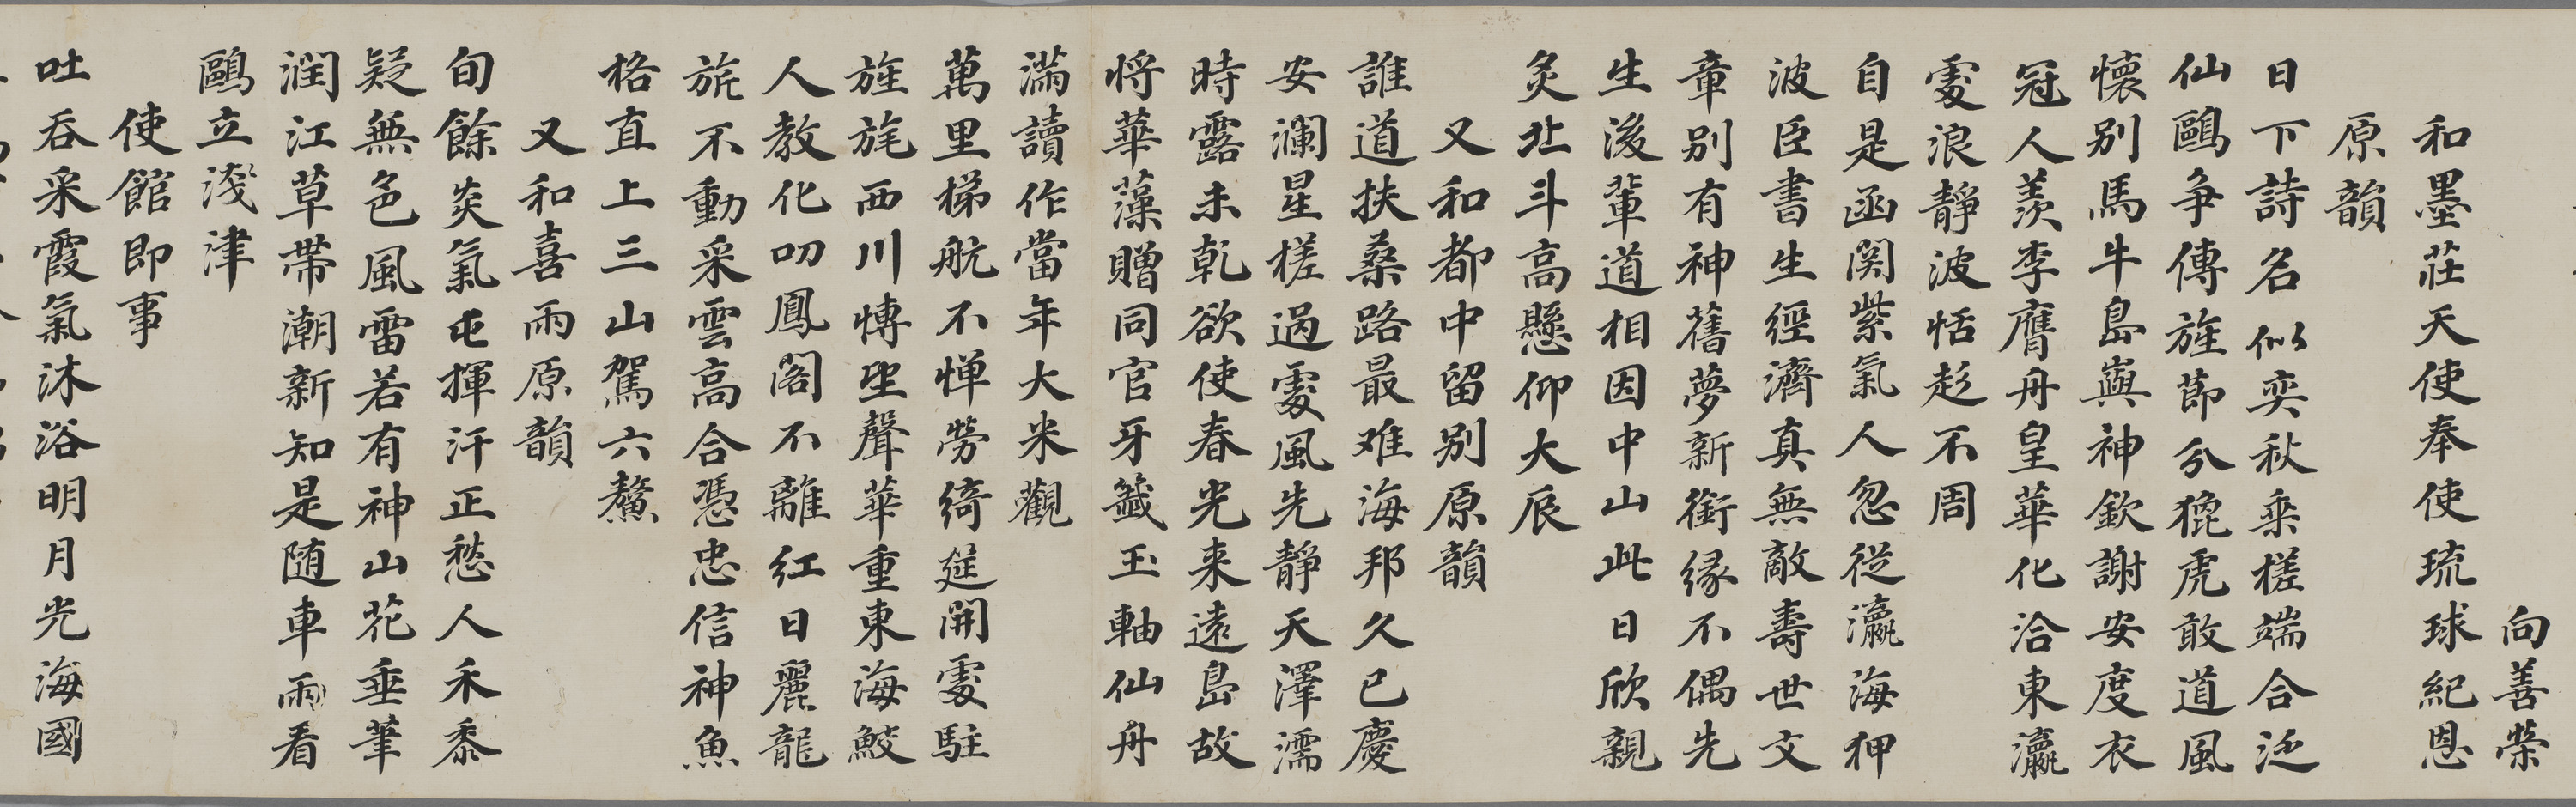 向善榮
和墨莊天使奉使琉球紀恩
原韻
日下詩名似奕秋乘槎端合泛
仙鷗爭傳旌節分㹸虎敢道風
懷别馬牛島與神欽謝安度衣
冠人羨李膺舟皇華化洽東瀛
處浪靜波恬趁不周
自是函関紫氣人忽從瀛海狎
波臣書生經濟真無敵壽世文
章别有神舊夢新銜緣不偶先
生後輩道相因中山此日欣親
炙北斗高懸仰大辰
又和都中留别原韻
誰道扶桑路最难海邦久已慶
安瀾星槎過處風先靜天澤濡
時露未乾欲使春光来遠島故
将華藻贈同官牙籤玉軸仙舟
滿讀作當年大米觀
萬里梯航不惮勞綺筵開處駐
旌旄西川博望聲華重東海鮫
人教化叨鳳閣不離紅日麗龍
旂不動采雲高合憑忠信神魚
格直上三山駕六鰲
又和喜雨原韻
旬餘炎氣屯揮汗正愁人禾黍
疑無色風雷若有神山花垂筆
潤江草帶潮新知是随車雨看
鷗立淺津
使館即事
吐吞采霞氣沐浴明月光海國